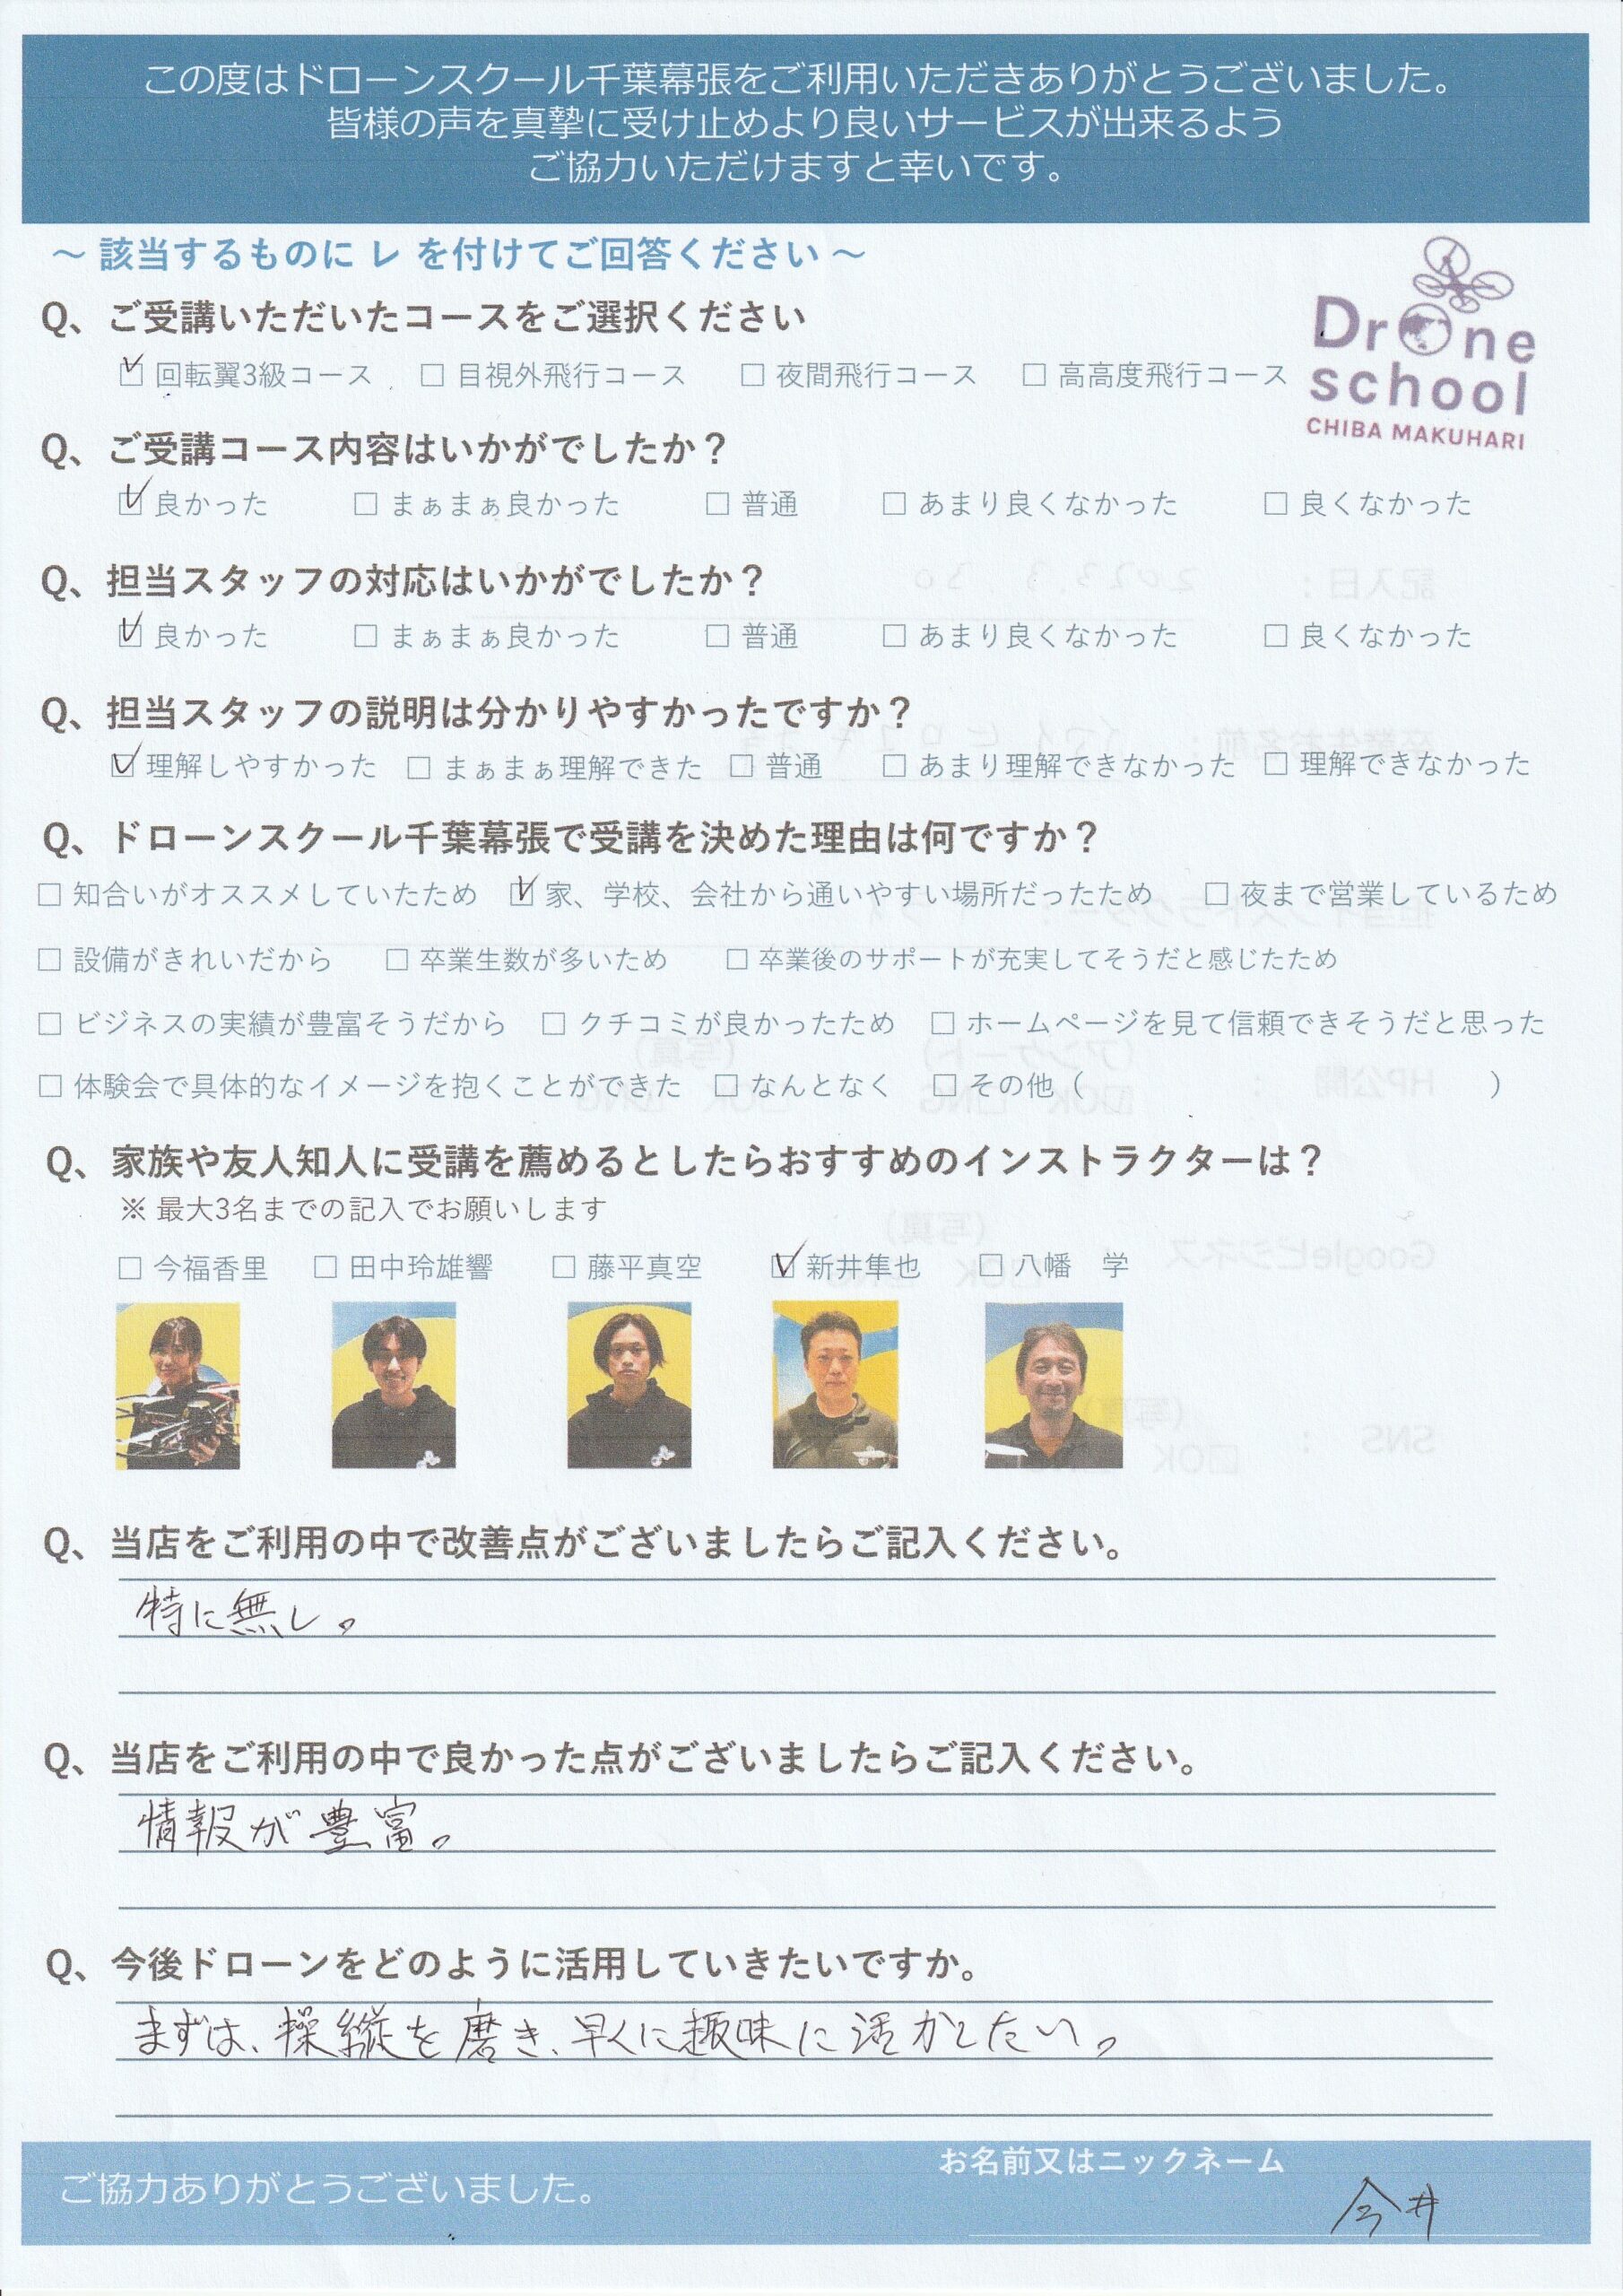 この度はドローンスクール千葉幕張をご利用いただきありがとうございました。
皆様の声を真摯に受け止めより良いサービスが出来るよう
ご協力いただけますと幸いです。
～ 該当するものに レ を付けてご回答ください ～
Drone
school
CHIBA MAKUHARI
Q、ご受講いただいたコースをご選択ください
☑ 回転翼3級コース □ 目視外飛行コース □ 夜間飛行コース □ 高高度飛行コース
Q、ご受講コース内容はいかがでしたか？
☑ 良かった □ まぁまぁ良かった □ 普通 □ あまり良くなかった □ 良くなかった
Q、担当スタッフの対応はいかがでしたか？
☑ 良かった □ まぁまぁ良かった □ 普通 □ あまり良くなかった □ 良くなかった
Q、担当スタッフの説明は分かりやすかったですか？
☑ 理解しやすかった □ まぁまぁ理解できた □ 普通 □ あまり理解できなかった □ 理解できなかった
Q、ドローンスクール千葉幕張で受講を決めた理由は何ですか？
□ 知合いがオススメしていたため ☑ 家、学校、会社から通いやすい場所だったため □ 夜まで営業しているため
□ 設備がきれいだから □ 卒業生数が多いため □ 卒業後のサポートが充実してそうだと感じたため
□ ビジネスの実績が豊富そうだから □ クチコミが良かったため □ ホームページを見て信頼できそうだと思った
□ 体験会で具体的なイメージを抱くことができた □ なんとなく □ その他（ ）
Q、家族や友人知人に受講を薦めるとしたらおすすめのインストラクターは？
※ 最大3名までの記入でお願いします
□ 今福香里 □ 田中玲雄響 □ 藤平真空 ☑ 新井隼也 □ 八幡 学
Q、当店をご利用の中で改善点がございましたらご記入ください。
特に無し。
Q、当店をご利用の中で良かった点がございましたらご記入ください。
情報が豊富。
Q、今後ドローンをどのように活用していきたいですか。
まずは、操縦を磨き、早くに趣味に活かしたい。
ご協力ありがとうございました。
お名前又はニックネーム
今井